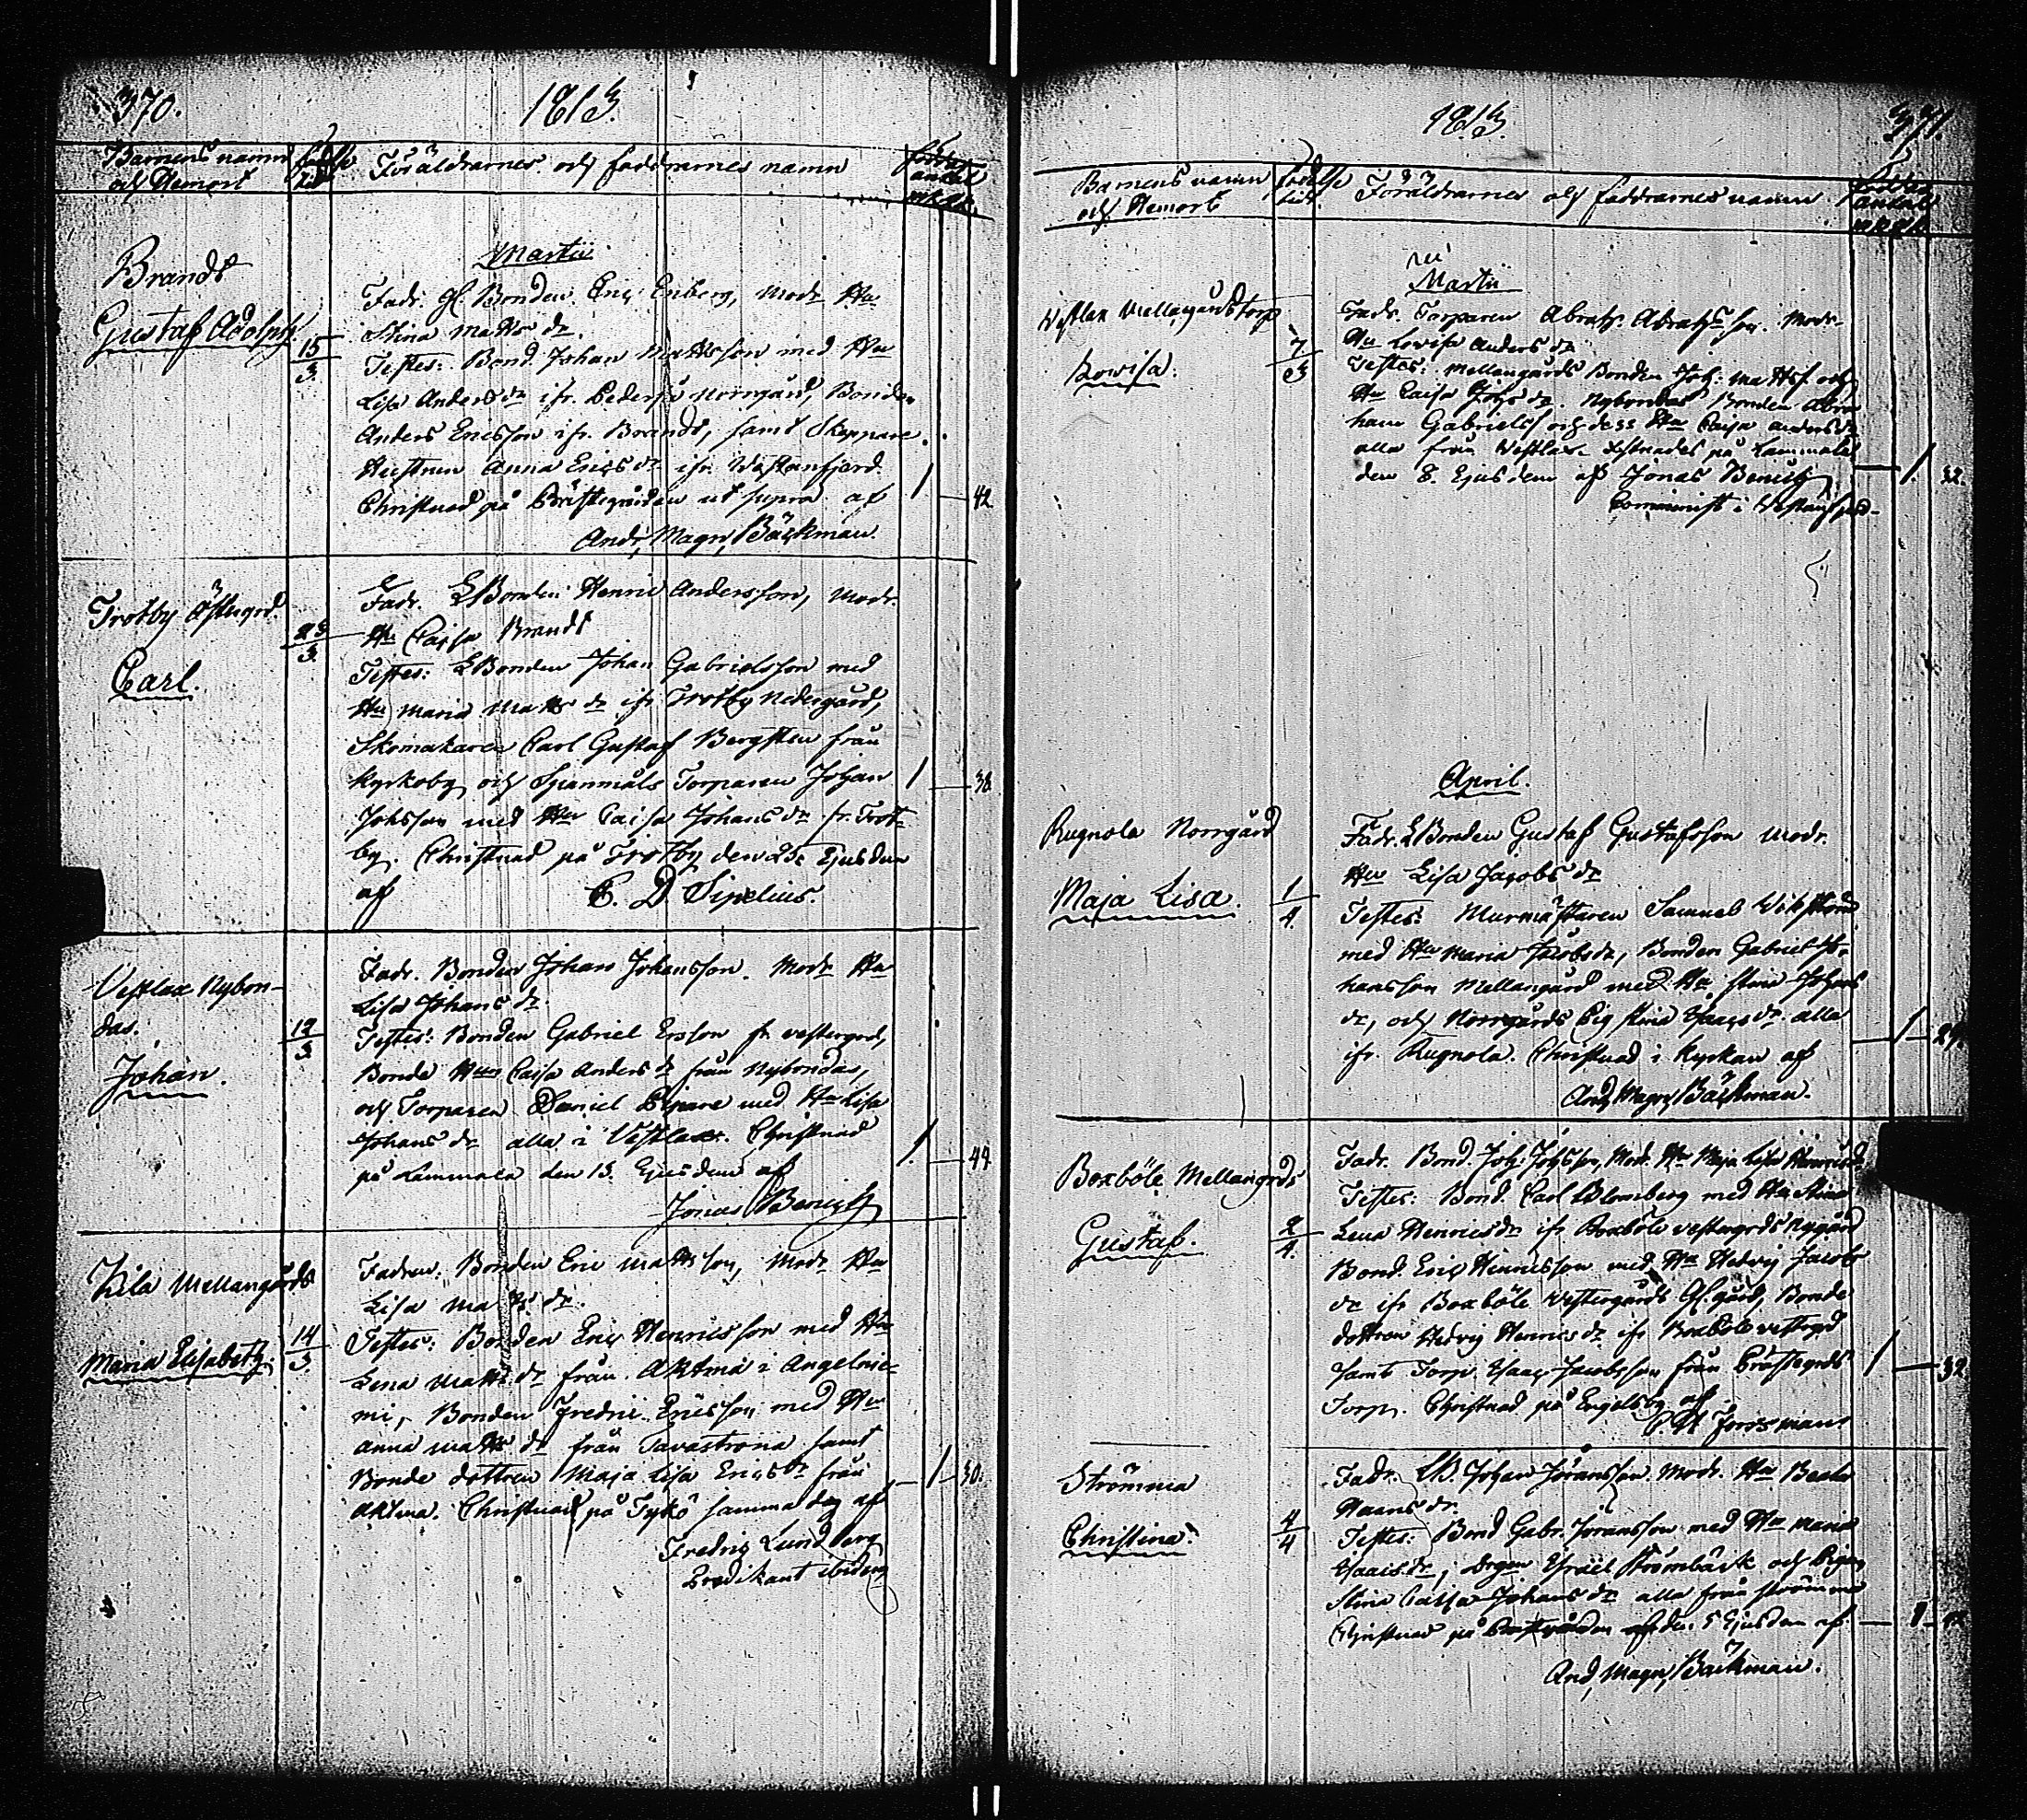 370.
1813.
Barnens namn och Hemort
födelse tid
Föräldrarnes och faddrarnes namn
Martii
Brands
Gustaf Adolph
15/3
Fadr. Gl Bonden Eric Enberg, modr Hu
Stina Matts dr.
Testes: Bond. Johan Mattsson med Hu
Lisa Anders dr ifr. Pedersö Norrgård, Bonden
Anders Ericsson ifr. Brands, samt Skeppare
Hustrun Anna Erics dr ifr. Westanfjerd.
Christnad på Prästegården ut supra af
1 42
Andr. Magn. Bäckman.
Trotby Östergrd.
23/3
Carl.
Fadr. LBonden Henric Andersson, modr.
Hu Caisa Brands
Testes: LBonden Johan Gabrielsson med
Hu Maria Matts dr ifr Trotby Nedergård,
Skomakaren Carl Gustaf Bergsten från
Kyrkoby och Spanmåls Torparen Johan
1 38
Johsson med Hu Caisa Johans dr fr. Trot-
by. Christnad på Trotby den 25 Ejusdem
af E. D. Sipelius.
Vestlax Nybon-
das.
12/3
Johan.
Fadr. Bonden Johan Johansson. Modr Hu
Lisa Johans dr.
Testes: Bonden Gabriel Ersson fr vestergrd,
Bonde Hun Caisa Anders dr från Nybondas,
och Torparen Daniel Pipare med Hu Lisa
Johans dr alla i Vestlax. Christnad
på Lammala den 13. Ejusdem af
1. 44
Jonas Benigh
Kila Mellangårds
14/3
Maria Elisabeth.
Fadren: Bonden Eric Mattsson, Modr Hu
Lisa Matts dr.
Testes: Bonden Eric Henricsson med Hu
Lena Matts dr från Aktma i Angelnie-
mi, Bonden Fredric Ericsson med Hu
Anna Matts dr från Tavastrona samt
Bonde dottren Maja Lisa Erics dr från
1 30.
Aktma. Christnad på Tykö samma dag af
Fredric Lundberg
Predikant ibidem
1813.
371.
Barnens namn och Hemort
födelse tid.
Föräldrarnes och faddrarnes namn
Martii
Westlax Mellangårds torp
7/3
Lovisa.
Fadr. Torparen Abrah. Abrahsson. Modr.
Hu Lovisa Anders dr
Testes: Mellangårds Bonden Joh: Mattsf och
Hu Caisa Johs dr. Nybondas Bonden Abra
ham Gabrielss och dess Hu Caisa Anders dr
alla från Westlax. Christnades på Lammala
den 8. Ejusdem af Jonas Benigh
1. 32.
Comminist i Westanfjerd
April.
Rugnola Norrgård
Maja Lisa.
1/4.
Fadr. LBonden Gustaf Gustafsson modr.
Hu Lisa Jacobs dr
Testes: Murmästaren Samuel Wikström
med Hu Maria Jacobs dr, Bonden Gabriel Jo-
hansson Mellangård med Hu Stina Johans
dr, och Norrgårds Pig Stina Isaacs dr. alla
ifr. Rugnola. Christnad i Kyrkan af
1 29.
And. Magn. Bäckman.
Boxböle Mellangrds
Gustaf.
2/4.
Fadr. Bond. Joh: Johsson, Modr. Hu Maja Lisa Henricsdr
Testes: Bond. Carl Blomberg med Hu Stina
Lena Henrics dr ifr Boxböle vestergrds Nygård
Bond. Eric Henricsson med Hu Hedvig Jacobs
dr ifr Boxböle Westergårds Gl. gård, Bonde
dottren Hedvig Henrics dr ifr Boxböle vestergrd
samt Torp. Isaac Jacobsson från Prästegrds
1 32
Torp. Christnad på Engelsby af
Forsman
Strömma
Christina.
4/4
Fadr. LB. Johan Göransson. Modr. Hu Beata
Testes: Bond Gabr. Göransson med Hu Maria
Isaacs dr; Drgen Israel Strömbäck och Pigan
Stina Caisa Johans dr alla från Strömma
Christnad på Prästgården den 5 Ejusdem af
And. Magn. Bäckman.